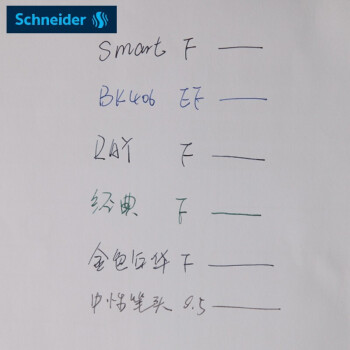 Schneider
Smart F
BK406 EF
RAY F
经典 F
金色百华 F
中性笔头 0.5